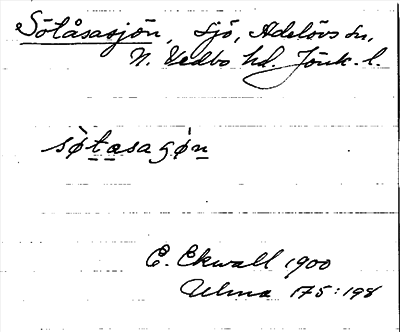 Sötåsasjön, sjö, Adelövs sn,
N. Vedbo hd. Jönk. l.
sø̀tasa ʂø̀n
E. Ekwall 1900
Ulma 175:198